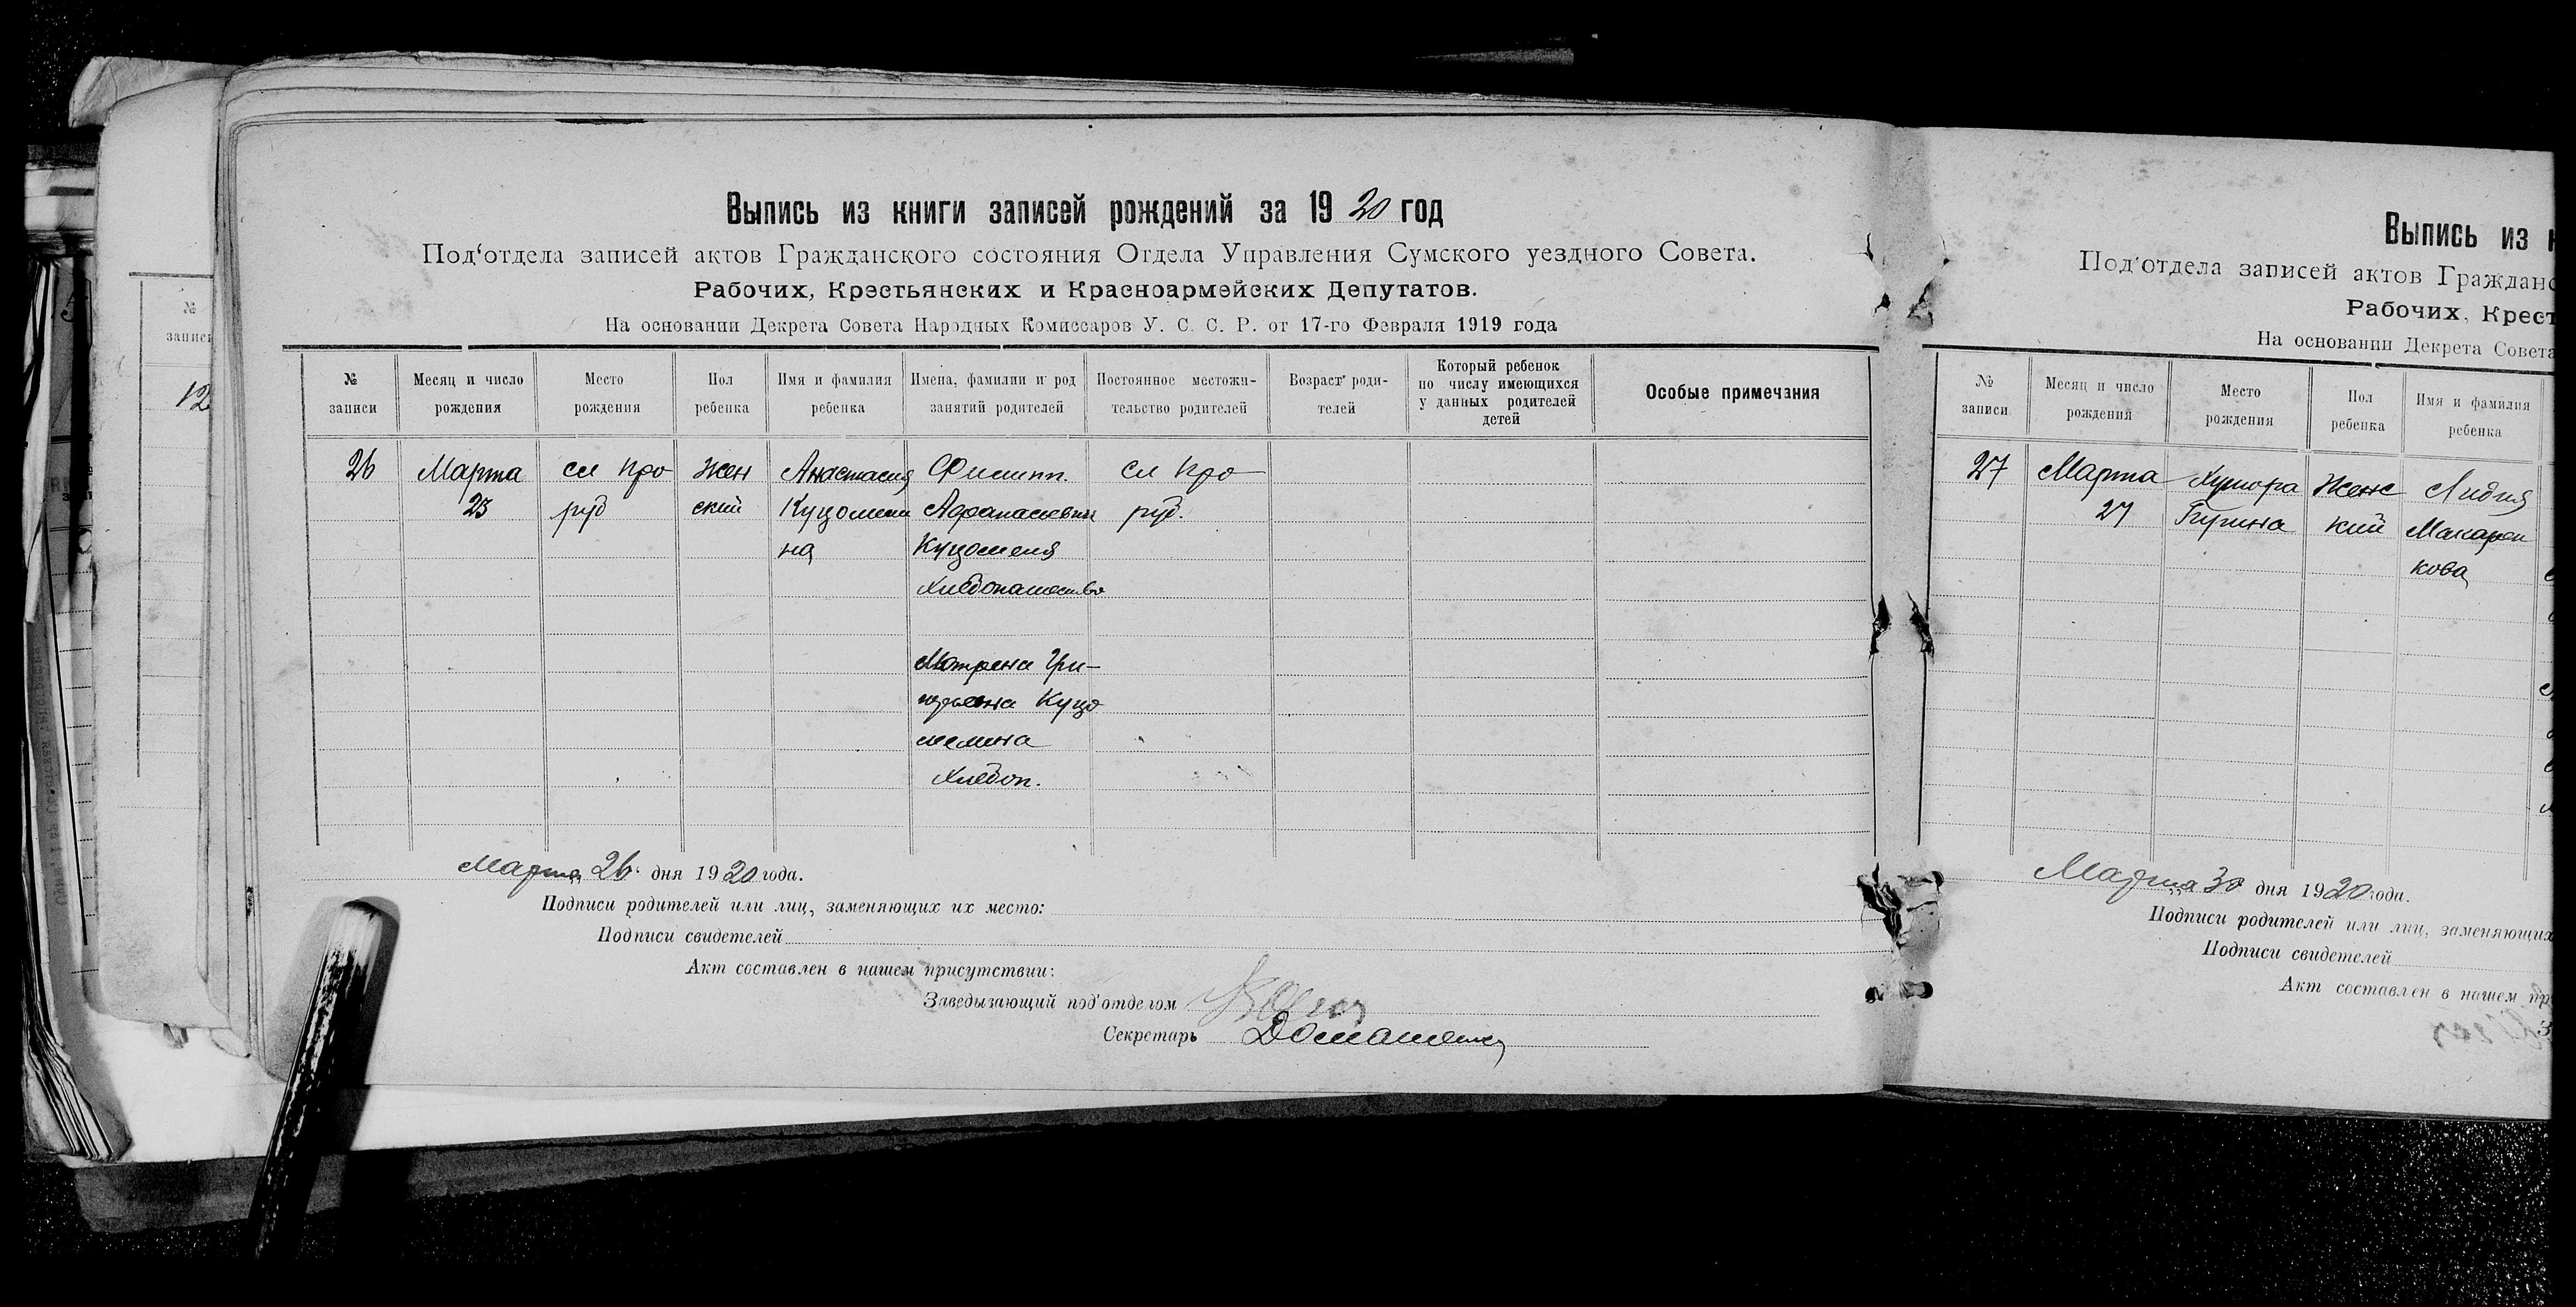 Выпись из книги записей рождений за 1920 год
Под‘отдела записей актов Гражданского состояния Отдела Управления Сумского уездного Совета.
Рабочих, Крестьянских и Красноармейских Депутатов.
На основании Декрета Совета Народных Комиссаров У. С. С. Р. от 17-го Февраля 1919 года
№ записи
Месяц и число рождения
Место рождения
Пол ребенка
Имя и фамилия ребенка
Имена, фамилии и род занятий родителей
Постоянное местожи-
тельство родителей
Возраст роди-
телей
Который ребенок
по числу имеющихся
у данных родителей
детей
Особые примечания
26
Марта
23
сл Про
руд
Жен
ский
Анастасия
на
Филипп.
Афанасиевич
Хлебопашество
Матрена Гри-
Куцо
Хлебоп.
сл Про
руд.
Марта 26 дня 1920 года.
Подписи родителей или лиц, заменяющих их место:
Подписи свидетелей
Акт составлен в нашем присутствии:
Заведывающий под‘отделом
Секретарь
№
запис
12
Выпись из
Под‘отдела записей актов Гражданс
Рабочих, Крест
На основании Декрета Совета
№ записи
Месяц и число рождения
Место рождения
Пол ребенка
Имя и фамилия ребенка
27
Марта
27
Хутора
Женс
кий
Лидия
Макарен
кова
Марта 30 дня 1920 года.
Подписи родителей или лиц, заменяющих
Подписи свидетелей
Акт составлен в нашем пр